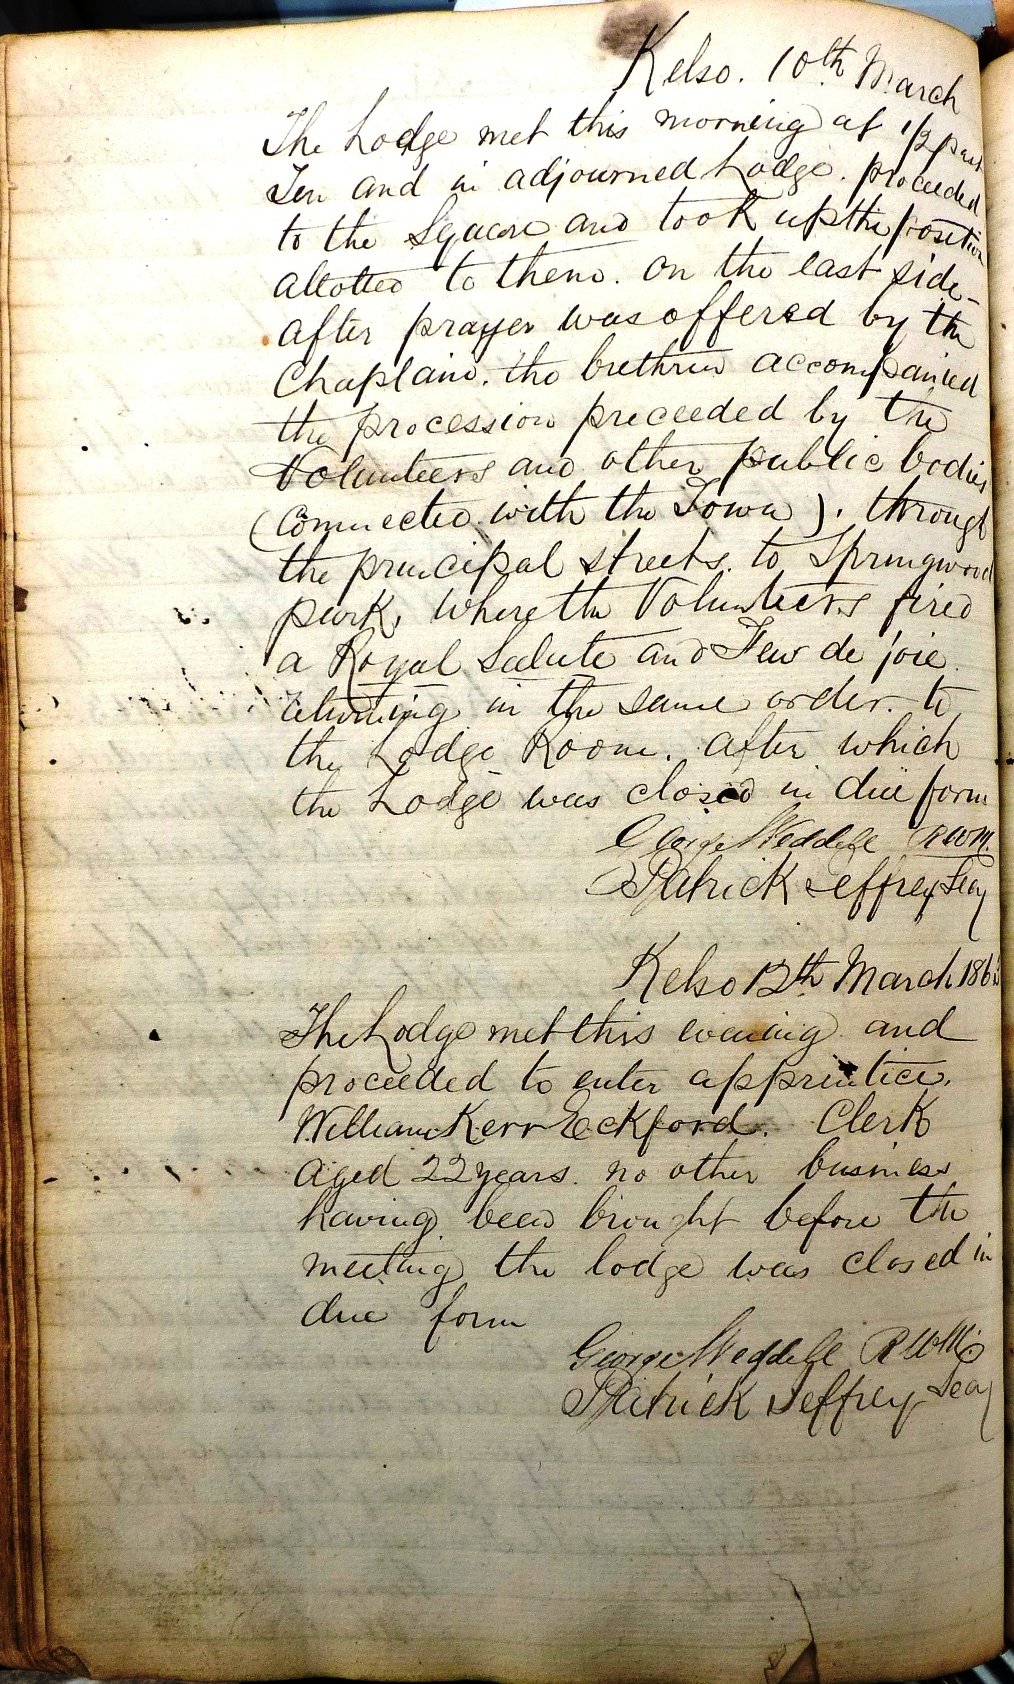 Kelso. 10th March
The Lodge met this morning at 1/2 past
Ten and in adjourned Lodge. proceeded
to the Square and took up the position
allotted to them. on the east side–
after prayer was offered by the
Chaplain. the brethren accompanied
the procession preceeded by the
Volunteers and other public bodies
(connected with the Town). through
the principal streets. to Springwood
park, where the Volunteers fired
a Royal Salute and Feu de joie.
returning in the same order. to
the Lodge Room. after which
the Lodge was closed in due form
George Weddell RWM.
Patrick Jeffrey Secy
Kelso 12th March 1863
The Lodge met this evening and
proceeded to enter apprentice.
William Kerr Eckford. Clerk
aged 22 years. no other business
having been brought before the
meeting the lodge was closed in
due form
George Weddell RWM
Patrick Jeffrey Secy